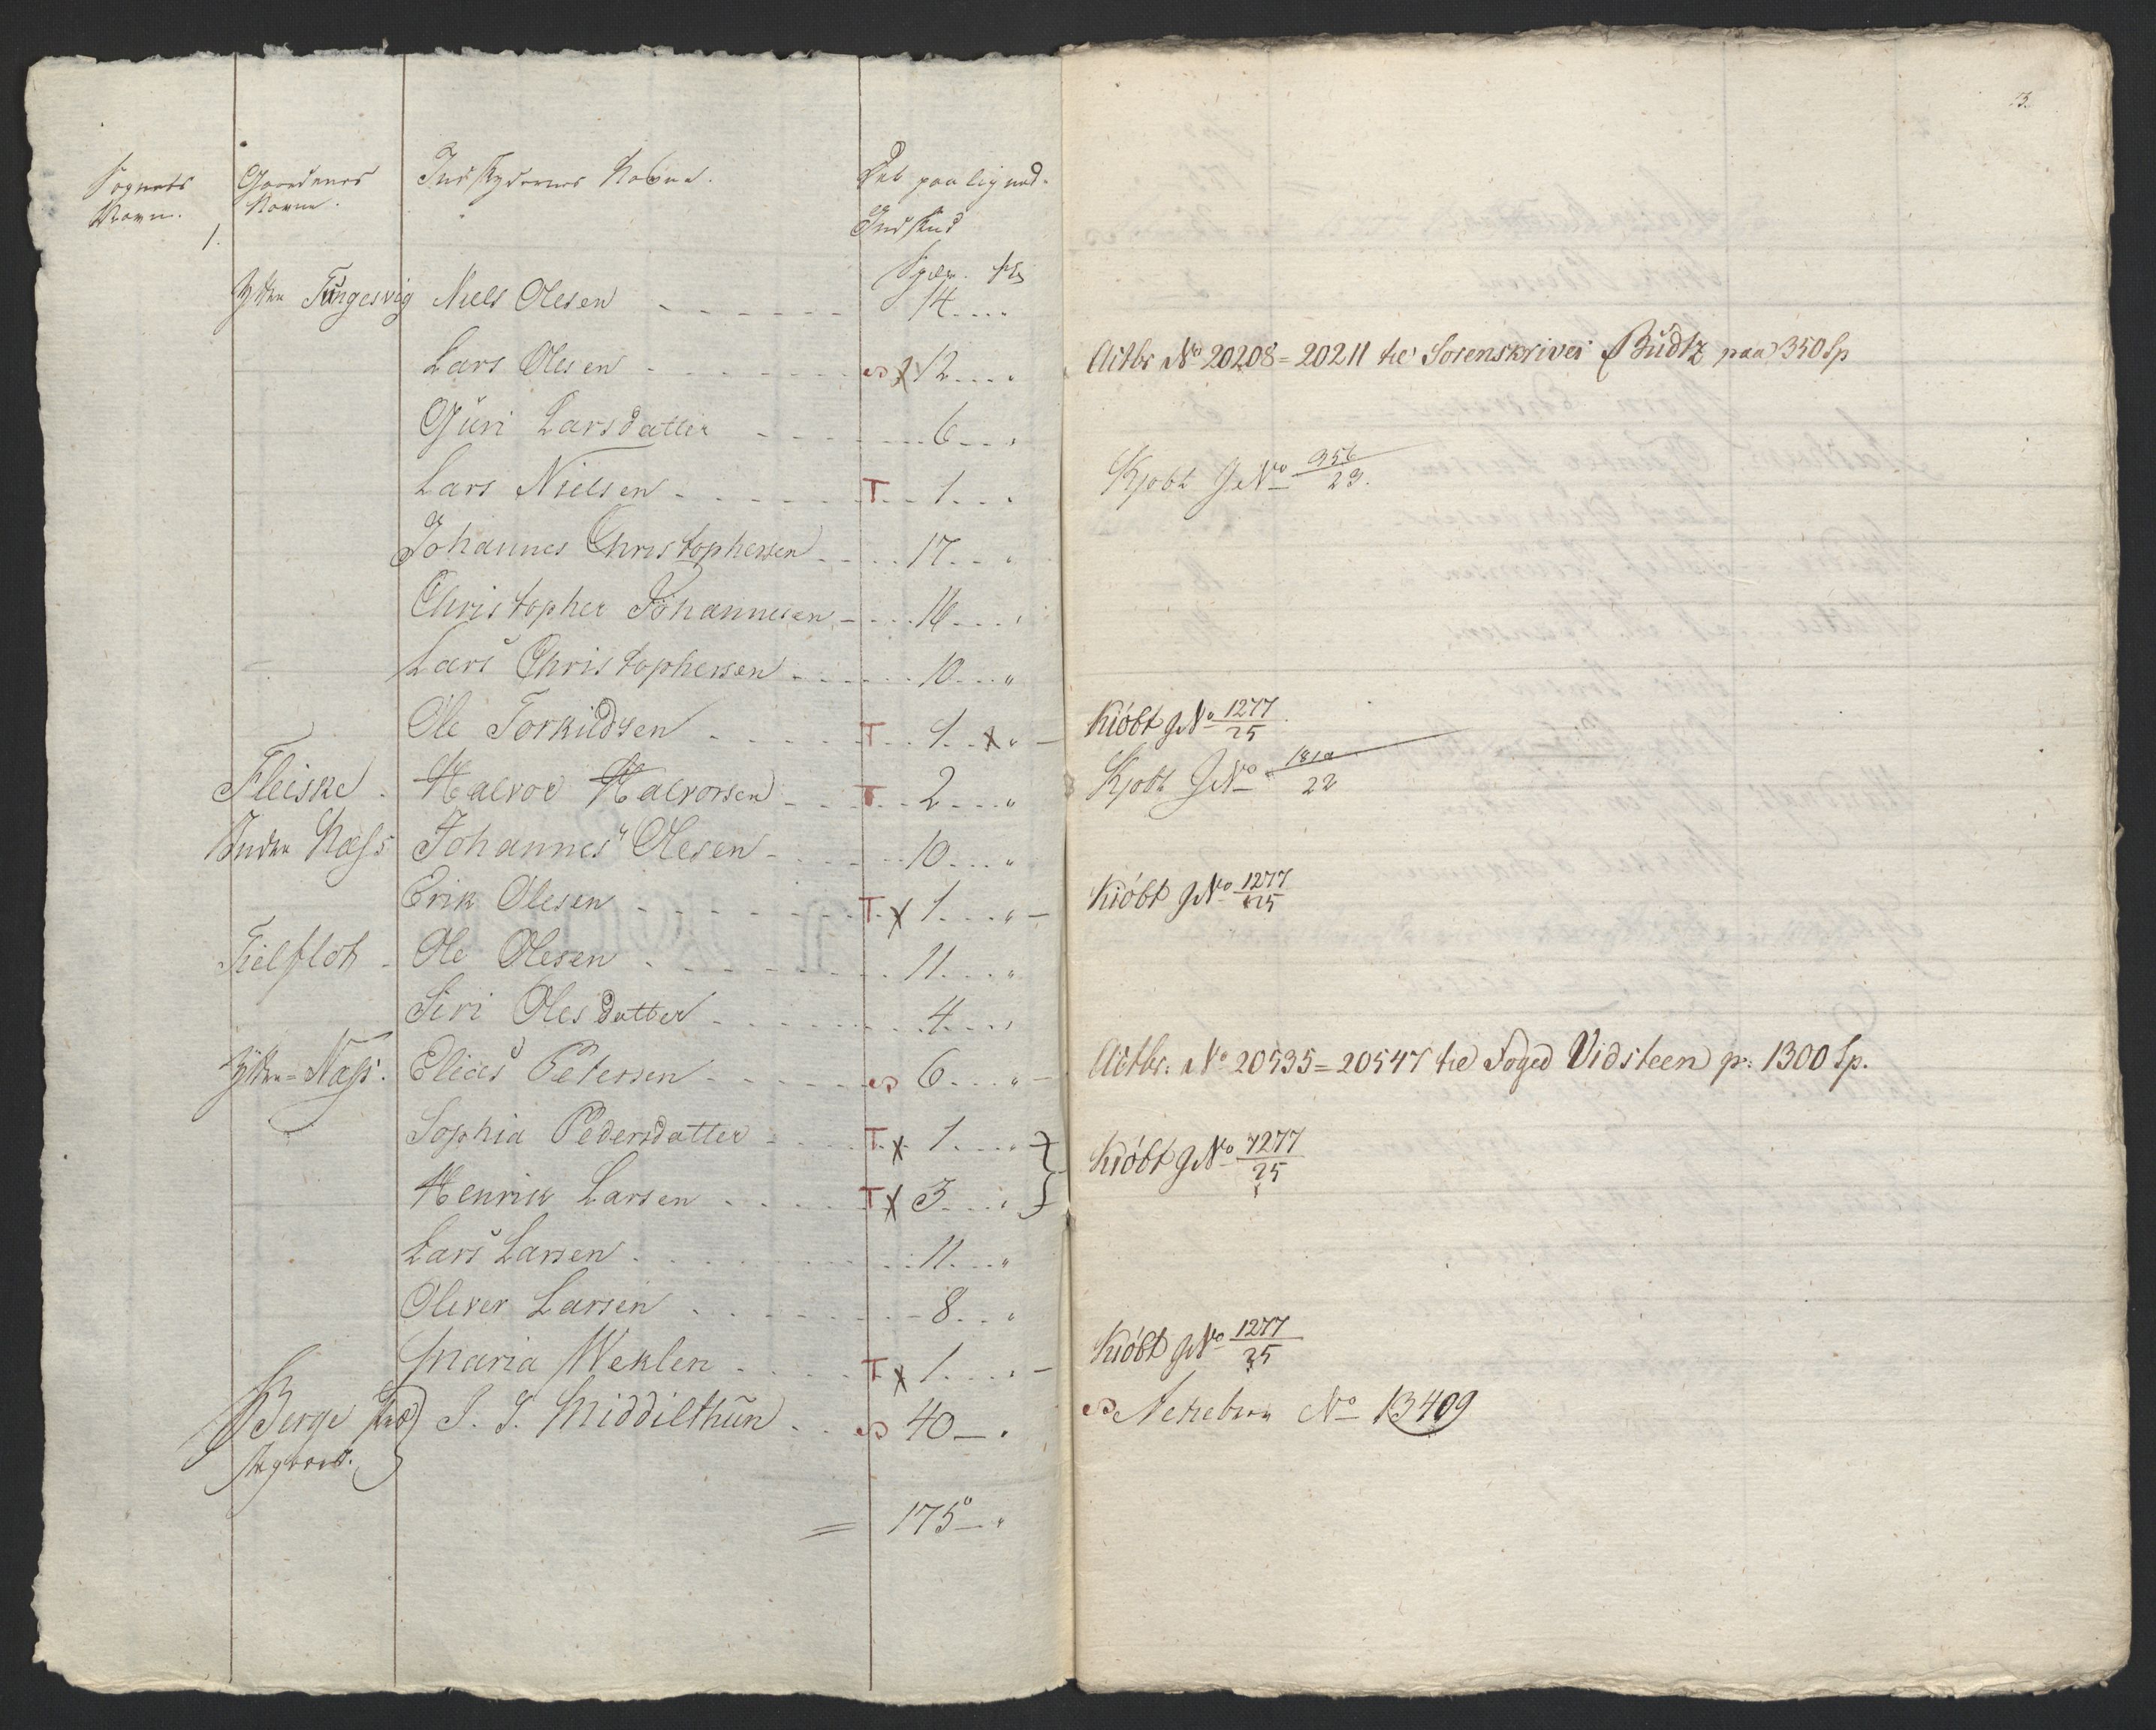 Sognets Navn.
1.
Gaardenes Navne.
Indskydernes Navne.
Det paalignede Indskud
Spdr. ß
Ytre Tungesvig Niels Olesen 14 "
Lars Olesen X 12 "
Guri Larsdatter 6 "
Lars Nielsen T 1 "
Johannes Christophersen 17 "
Christopher Johannesen 16 "
Lars Christophersen 10 "
Ole Torkildsen T 1 X "
Fleiske Halvor Halvorsen T 2 "
Indre Næss Johannes Olesen 10 "
Erik Olesen T X 1 "
Tielflot Ole Olesen 11 "
Siri Olesdatter 4 "
Ytre Næss. Elias Petersen 6 "
Sophia Pedersdatter T X 1 "
Henrik Larsen T X 3 "
Lars Larsen 11 "
Oliver Larsen 8 "
Maria Weklen T X 1 "
Berge J. J. Middelthun 40 "
= 175 "
13.
Actbr. No 20208 = 20211 til Sorenskriver Büdtz paa 350 Sp
Kjøbt J No 956/23.
Kiöbt J No 1277/25
Kjøbt J No 1810/22
Kiöbt J No 1277/25
Actbr. No 20535 = 20547 til Foged Vidsteen p. 1300 Sp.
Kiöbt J No 1277/25
Kiöbt J No 1277/25
No 13409